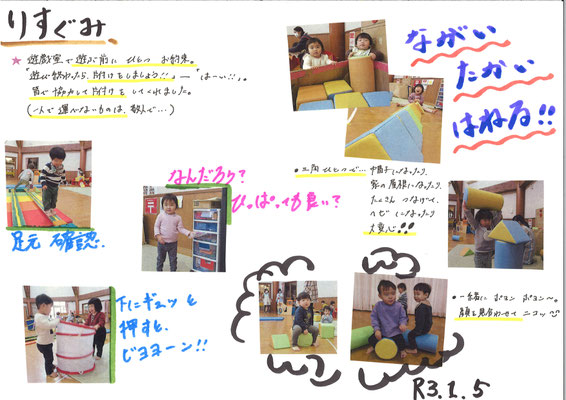 りすぐみ
★ 遊戯室で遊ぶ前に ひとつ お約束。
「遊び終わったら、片付けをしましょう!!」―「はーい!!」。
皆で協力して片付けを してくれました。
(一人で運べないものは、数人で…)
ながい
たかい
はねる!!
足元 確認。
なんだろう?
ひっぱっても良い?
• 三角 ひとつで… 帽子になったり、
家の屋根になったり、
たくさん つなげて、
ヘビ になったり
大変身!!
下にギュッと
押すと、
ビヨヨーン!!
• 一緒に ボヨン ボヨン〜。
顔を見合わせて ニコッ
R3.1.5